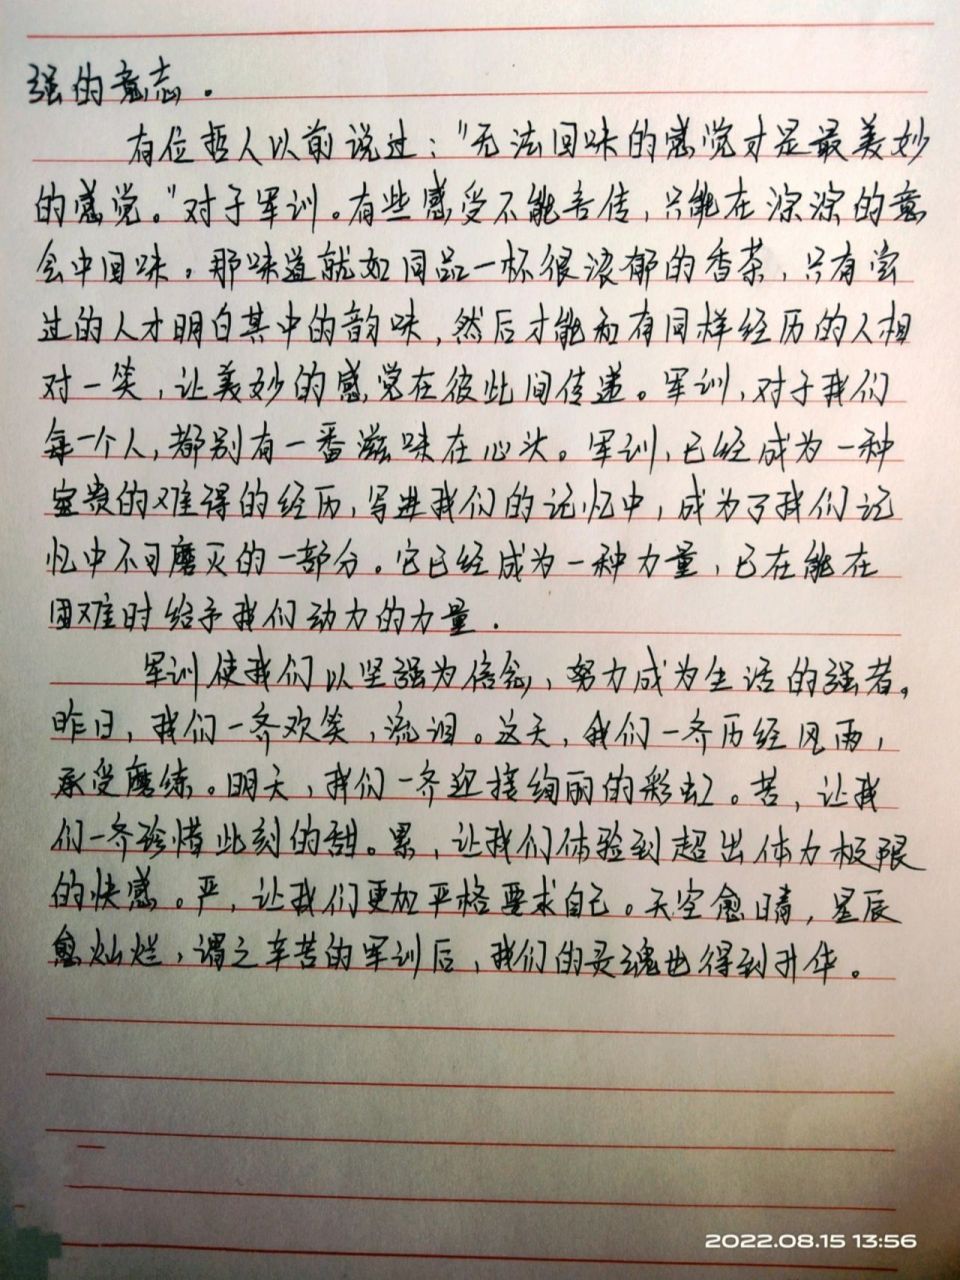 强的意志。
有位哲人以前说过："无法回味的感觉才是最美妙
的感觉。"对于军训。有些感受不能言传，只能在深深的意
会中回味。那味道就如同品一杯很浓郁的香茶，只有尝
过的人才明白其中的韵味，然后才能和有同样经历的人相
对一笑，让美妙的感觉在彼此间传递。军训，对于我们
每一个人，都别有一番滋味在心头。军训，已经成为一种
宝贵的难得的经历，写进我们的记忆中，成为了我们记
忆中不可磨灭的一部分。它已经成为一种力量，已在能在
困难时给予我们动力的力量．
军训使我们以坚强为信念，努力成为生活的强者。
昨日，我们一齐欢笑，流泪。这天，我们一齐历经风雨，
承受磨练。明天，我们一齐迎接绚丽的彩虹。苦，让我
们一齐珍惜此刻的甜。累，让我们体验到超出体力极限
的快感。严，让我们更加严格要求自己。天空愈晴，星辰
愈灿烂，谓之辛苦的军训后，我们的灵魂也得到升华。
2022.08.15 13:56